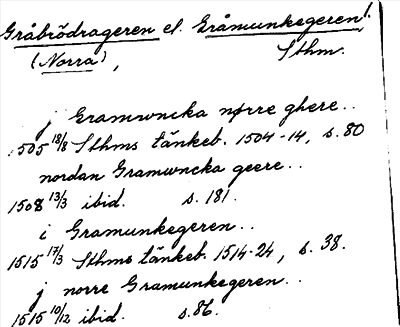 Gråbrödrageren el. Gråmunkegeren!.
(Norra), Sthm.
j Gramwncka nørre ghere..
1505 18/8 Sthms tänkeb. 1504-14, s. 80
nordan Gramwncka geere..
1508 13/3 ibid. s. 181.
i Gramunkegeren..
1515 17/3 Sthms tänkeb. 1514-24, s. 38.
j norre Gramunkegeren..
1515 10/12 ibid. s. 86.